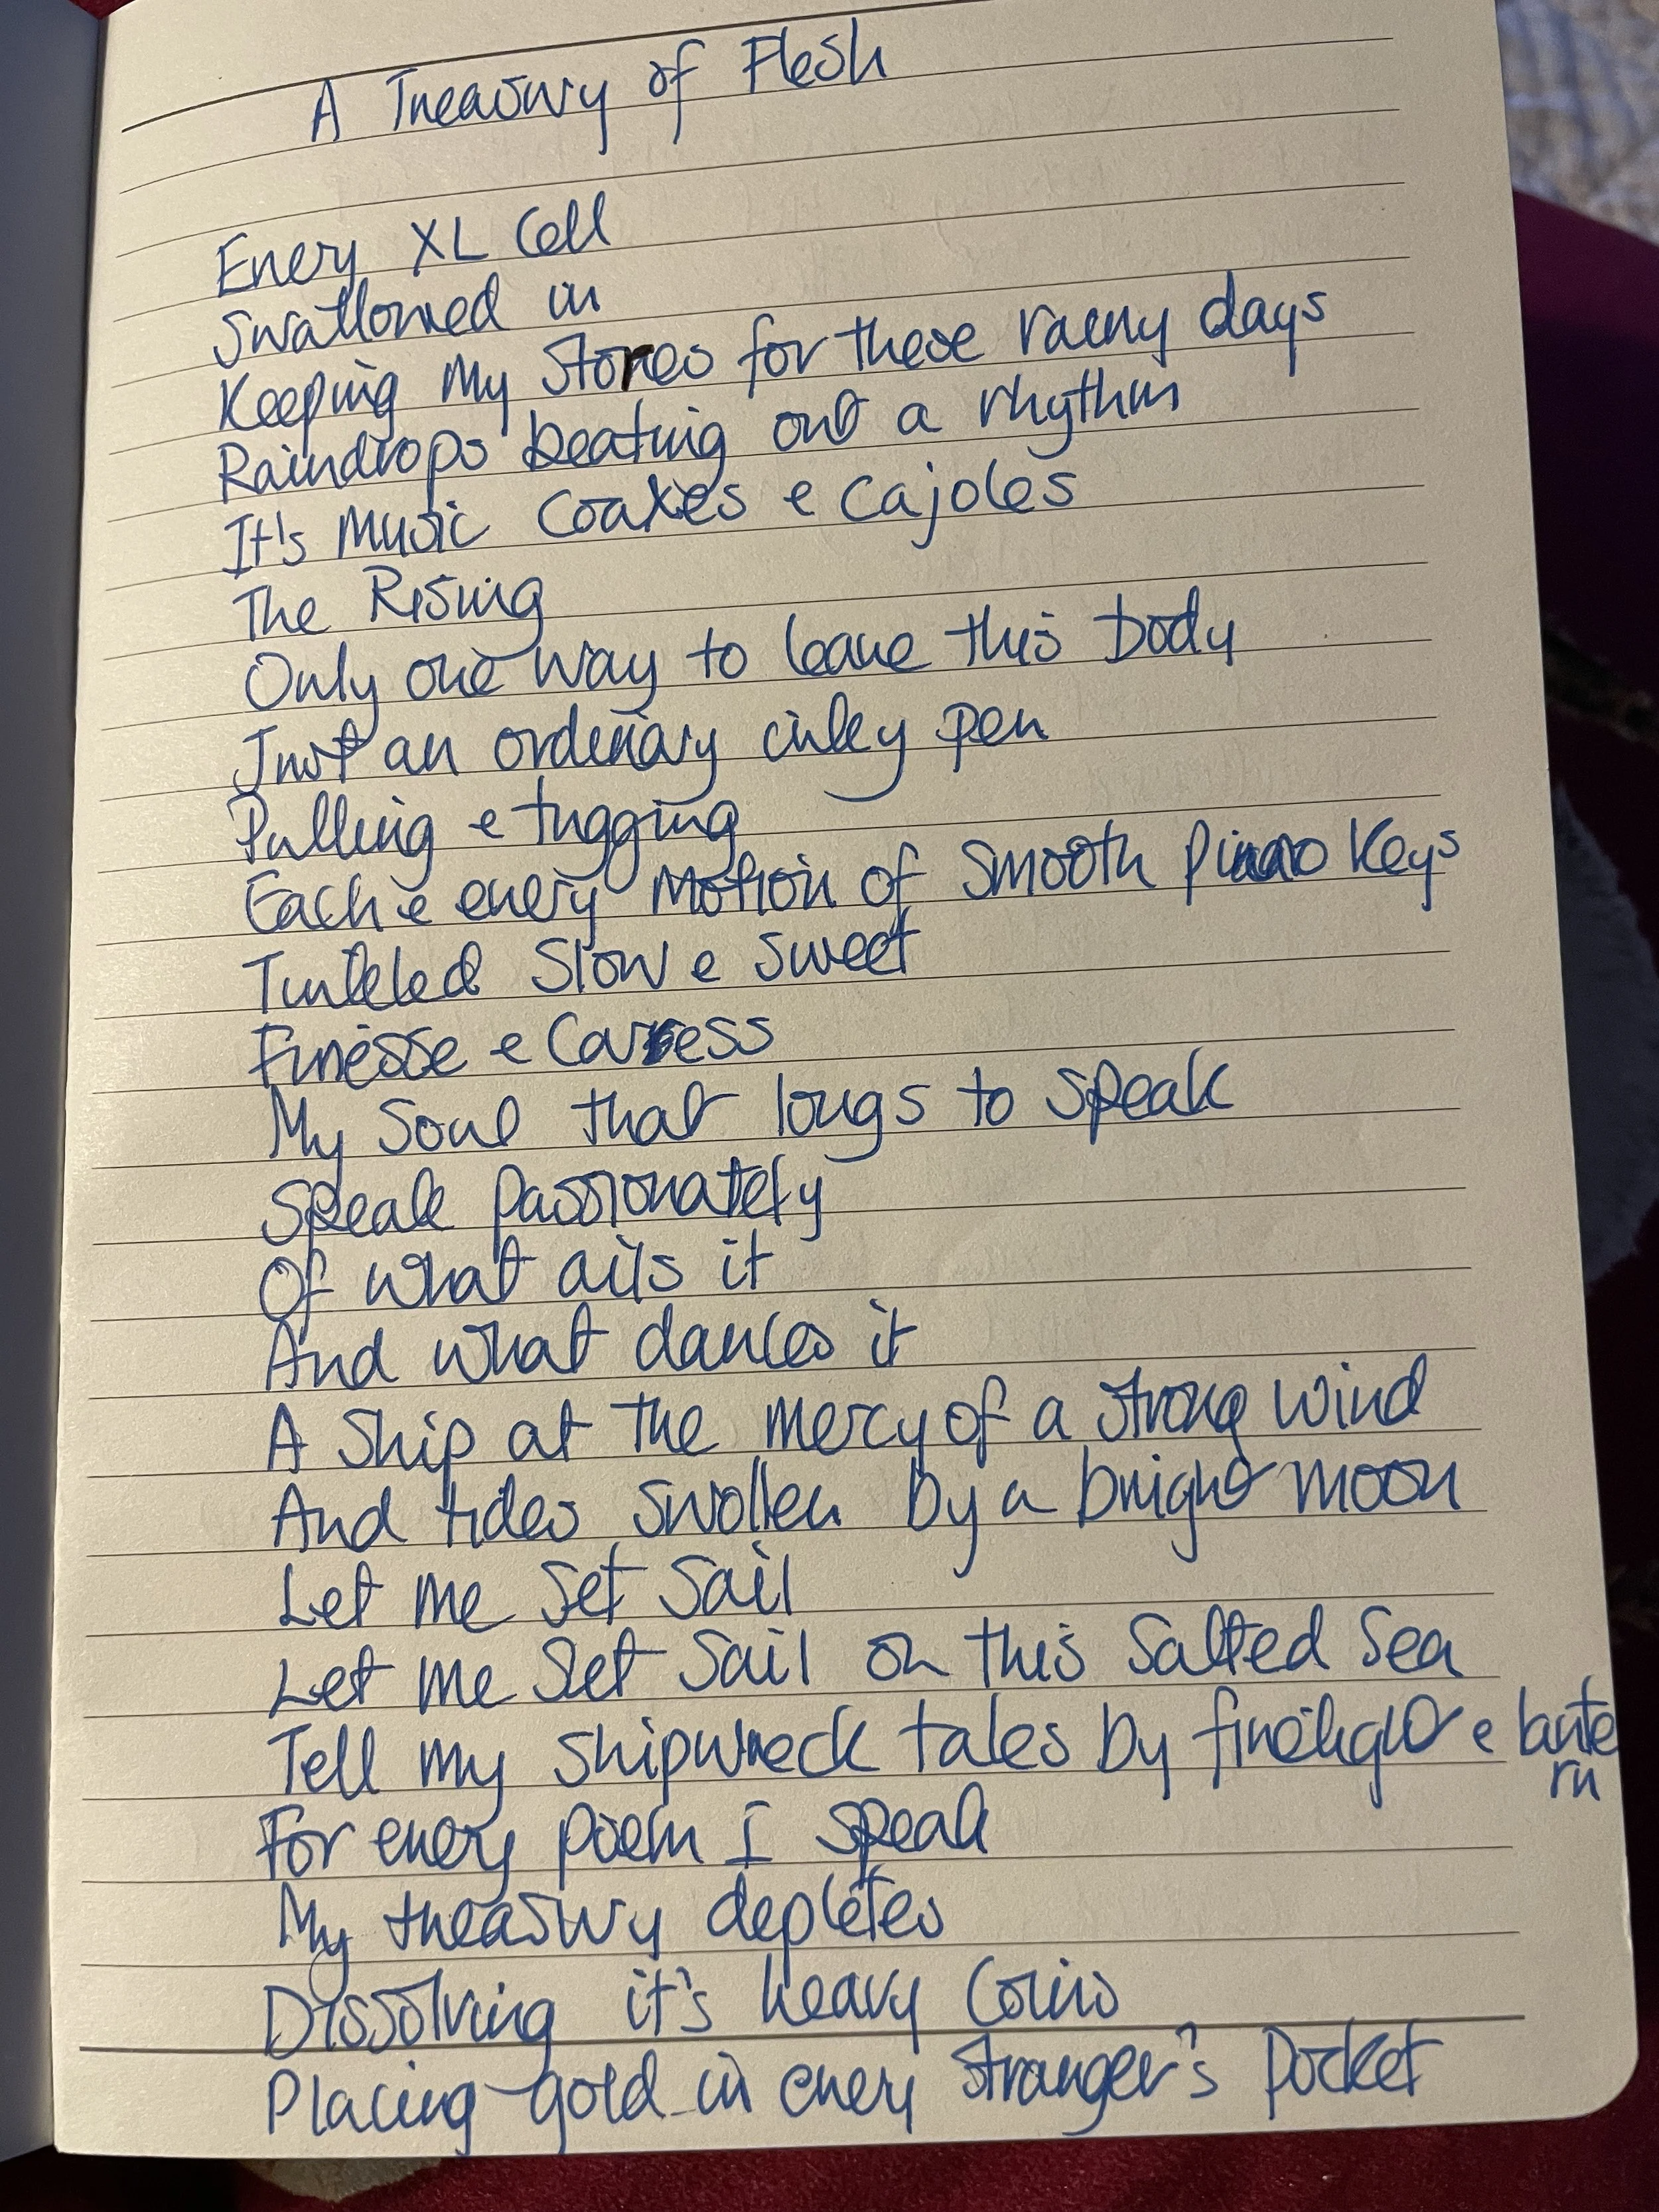 A Treasury of Flesh
Every XL Cell
Swallowed in
Keeping My Stores for these rainy days
Raindrops beating out a rhythm
It's Music Coaxes e cajoles
The Rising
Only one way to leave this body
Just an ordinary inky pen
Pulling e tugging
Each e every Motion of Smooth Piano Keys
Tinkled Slow e sweet
Finesse e Caress
My Soul that longs to speak
Speak passionately
Of what ails it
And what dances it
A Ship at the mercy of a strong wind
And tides swollen by a bright moon
Let me set sail
Let me set sail on this salted sea
Tell my shipwreck tales by firelight e lante
rn
For every poem I speak
My treasury depletes
Dissolving it's heavy Coins
Placing gold in every stranger's pocket